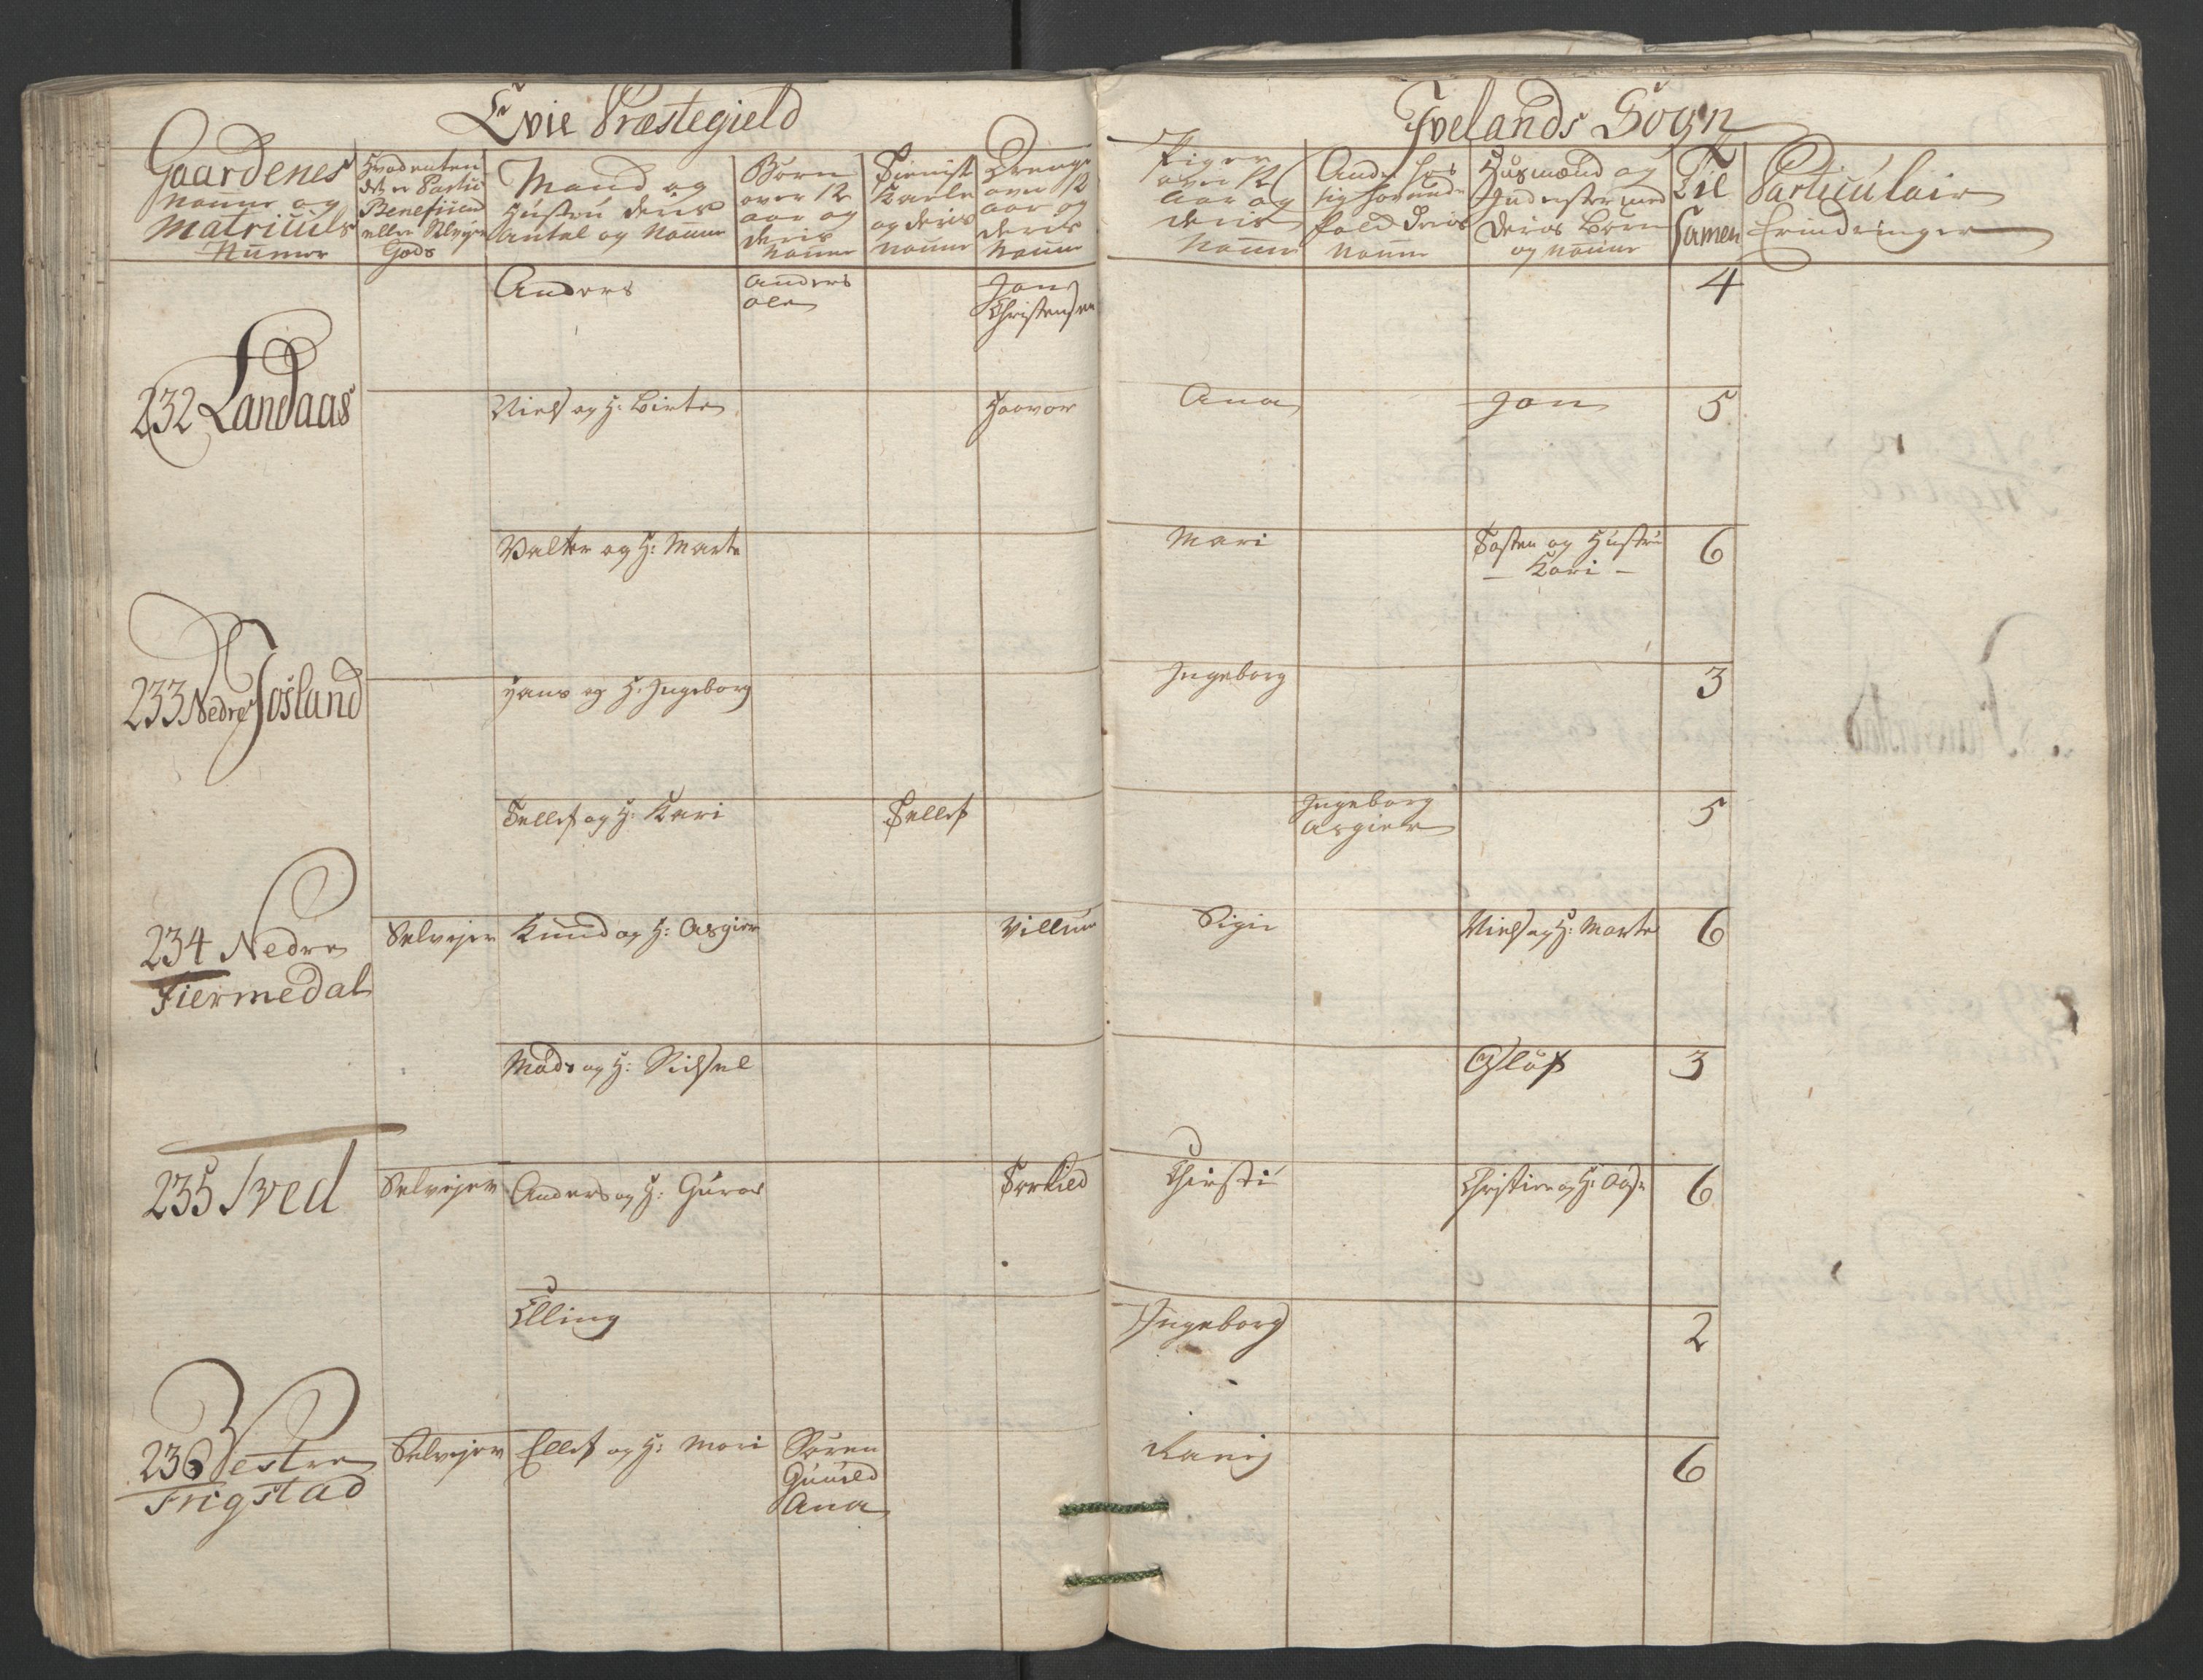 Evie Præstegield
Ivelands Sogn
Gaardenes
Naune og
Matriculs
Numer
Hvad enten
det er
Beneficeret
eller Selvejer
Gods
Mand og
Hustru deris
Antal og Naune
Børn
over 12
aar og
deris
Naune
Tienist
Karle
og deris
Naune
Drenge
over 12
aar og
deris
Naune
Piger
over 12
Aar og
deris
Naune
Andre hos
sig
Fold deris
Naune
Husmænd og
Inderster med
deris Børn
og Naune
Til
Samen
Particulair
Erindringer
Anders
Anders
Ole
Jon
Christensen
4
232 Landaas
Niels og H: Birte
Haavor
Ana
Jon
5
Valter og H: Marte
Mari
Tosten og Hustru
- Kari -
6
233 Nedre Josland
Hans og H: Ingeborg
Ingeborg
3
Tellef og H: Kari
Tellef
Ingeborg
Asgier
5
234 Nedre
Fiermedal
Selvejer
Knud og H: Asgier
Villum
Sigri
Niels og H: Marte
6
Mads og H: Sidsel
Osluf
3
235 Tved
Selvejer
Anders og H: Guroe
Torkied
Chirsti
Christien og H: Aase
6
Elling
Ingeborg
2
236 Vestre
Frigstad
Selvejer
Ellef og H: Mari
Søren
Gunild
Ana
Ranij
6